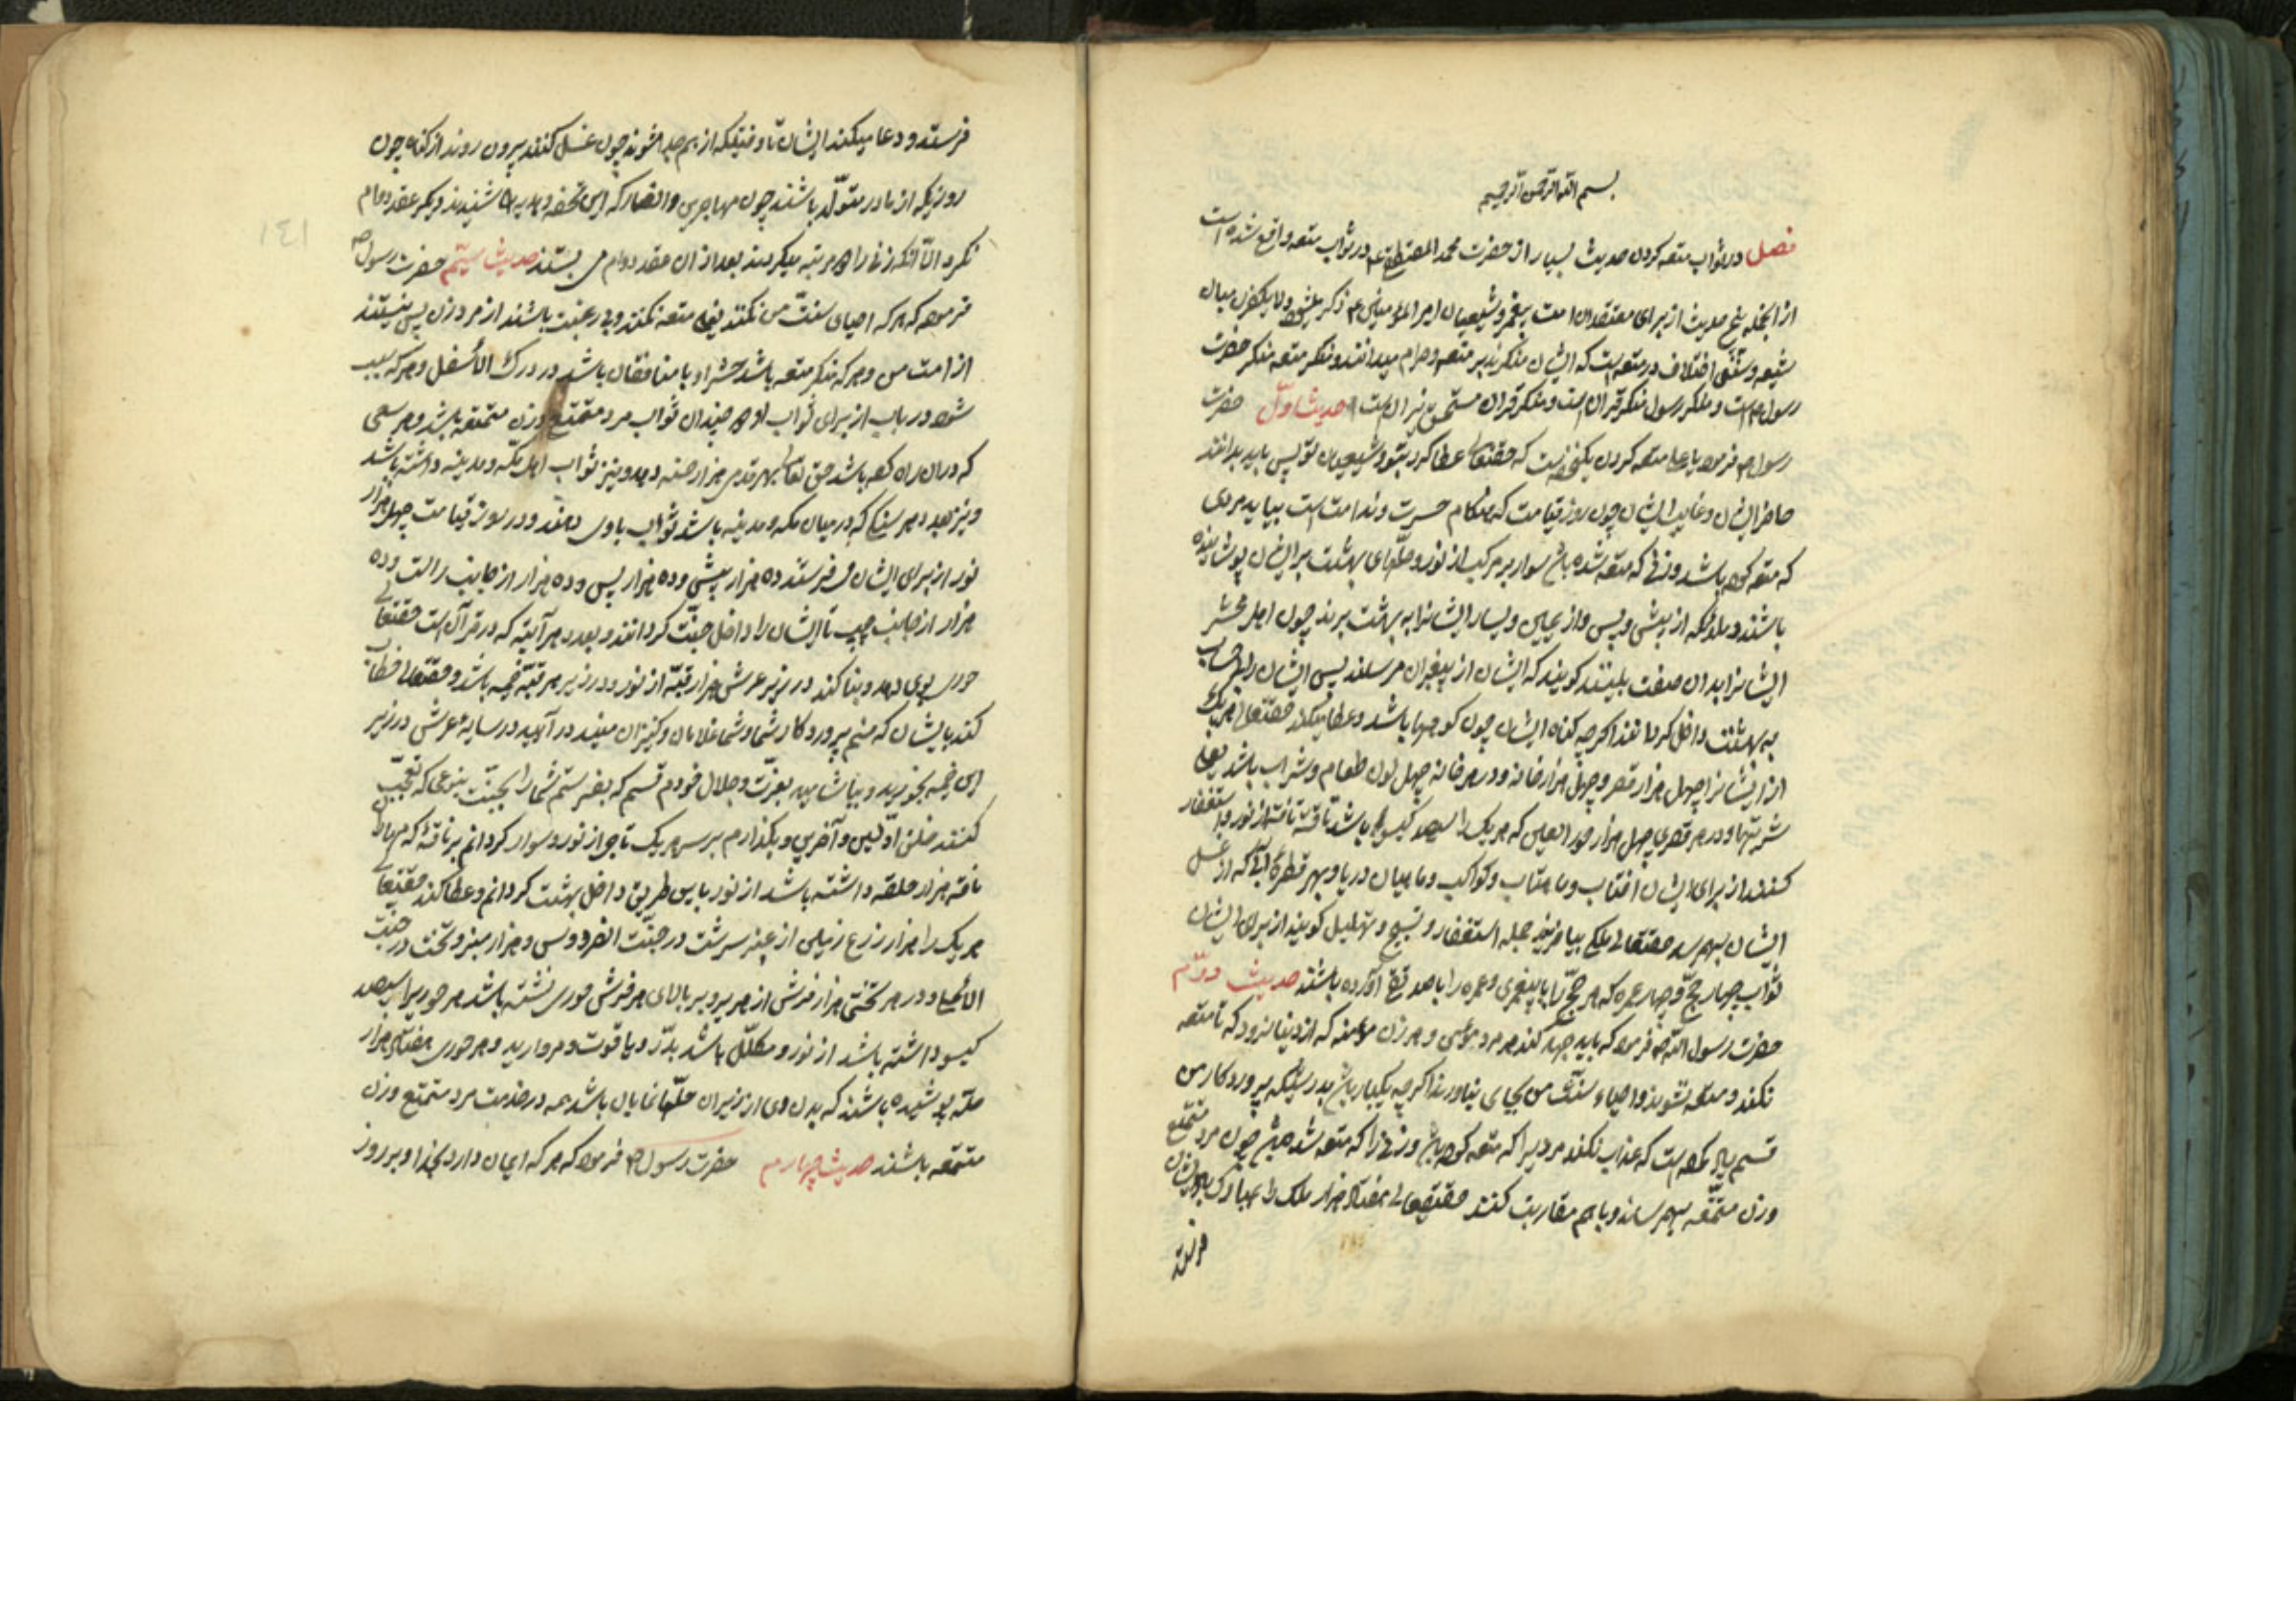 بسم الله الرحمن الرحیم
فصل در ثواب متعه کردن حدیث بسیار از حضرت محمد المصطفی در ثواب متعه واقع شده است
از انجمله پنج حدیث از برای معتقدان امت پیغمبر و شیعیان امیر المومنین ذکر میان
شیعه و سنی اختلاف در متعه است که ایشان منکرند بر متعه و حرام میدانند و منکر متعه منکر حضرت
رسول است و منکر رسول منکر قران است و منکر قران مستحق نیران است حدیث اول حضرت
رسول فرمود یا علی متعه کردن که حقتعالی عطا کرد بتو و شیعیان تو پس باید بدانند
حاضران و غایبان ایشان چون روز قیامت که هنکام حسرت و ندامت است بیاید مردی
که متعه کرده باشد و زنی که متعه شده باشد سوار بر مرکب از نور و حلهای بهشت بر ایشان پوشانیده
باشند و ملائکه از پیش و پس و از یمین و یسار ایشانرا به بهشت برند چون اهل محشر
ایشانرا بدان صفت بینند کویند که ایشان از پیغبران مرسلند پس ایشان را بی حساب
به بهشت داخل کردانند اکرچه کناه ایشان چون کوهها باشد و عطا میکند حقتعالی هر یک
از ایشانرا چهل هزار قصر و چهل هزار خانه و در هر خانه چهل لون طعام و شراب باشد یعنی
شربتها و در هر قصری چهل هزار حور العین که هر یک را سیصد کیسو باشد تافته از نور و استغفار
کنند از برای ایشان افتاب و ماهتاب و کواکب و ماهیان دریا و بهر قطره آب که از غسل
ایشان بهم رسد حقتعالی ملکی بیافریند جمله استغفار و تسبیح و تهلیل کویند از برای ایشان
ثواب چهار حج و چهار عمره که هر حج را با پیغمبری و عمره را با آورده باشند حدیث دوم
حضرت رسول الله فرمود که باید جهد کند هر مرد مؤمن و هر زن مؤمنه که از دنیا نرود که تا متعه
نکند و متعه نشوند و احیاء سنت من بجای نیاورند اکرچه یکبار باشد بدرستیکه پروردکار من
قسم یاد کرده است که عذاب نکند مردیرا که متعه کرده باشد و زنی را که متعه شده باشد چون مرد متمتع
و زن متمتعه بهم رسند و با هم مقاربت کنند حقتعالی هفتاد هزار ملک را
فرستد
فرستد و دعا میکند ایشان تا وقتیکه از هم جدا شوند چون غسل کنند بیرون روند از کناه چون
روزیکه از مادر متولد باشند چون مهاجرین و انصار که این تحفه و هدیه را شنیدند دیکر عقد دوام
نکرد الا آنکه زنی را مرتبه میکردند بعد از ان عقد دوام می بستند حدیث سیم حضرت رسول
فرمود که هر که احیای سنت من نکند یعنی متعه نکند و بی رغبت باشند از مرد و زن پس نیستند
از امت من و هر که منکر متعه باشد حشر او با منافقان باشد در درک الاسفل و هر که سبب
شود در باب از برای ثواب او چندان ثواب مرد متمتع و زن متمتعه باشد و هر سعی
که در ان راه کرده باشد حق تعالی بهر قدمی هزار حسنه دهد و نیز ثواب اهل مکه و مدینه داشته باشد
و نیز بعدد هر سنکی که در میان مکه و مدینه باشد ثواب باو دهند و در روز قیامت چهل هزار
نور از برای ایشان فرستند ده هزار پیش و ده هزار پس و ده هزار از جانب راست و ده
هزار از جانب چپ تا ایشان را داخل جنت کردانند و بعدد هر آیته که در قرآن است حقتعالی
حوری بوی دهد و بنا کند در زیر عرش هزار قبه از نور و در زیر هر قبه خیمه باشد و حقتعالی خطاب
کند بایشان که منم پروردکار شما و شما غلامان و کنیزان منید در آئید در سایه عرش در زیر
این خیمه بخورید و بیاشامید بعزت و جلال خودم قسم که بفرستم شما را بجنت بنوعی که تعجب
کنند خلق اولین و آخرین و بکذارم بر سر هر یک تاجی از نور و سوار کردانم بر ناقه که مهار آن
ناقه هزار حلقه داشته باشد از نور باین طریق داخل بهشت کردانم و عطا کند حقتعالی
هر یک را هزار زرع زمین از عنبر سرشت در جنت الفردوس و هزار منبر و تخت در جنت
و در هر تختی هزار فرش از حریر و بر بالای هر فرش حوری نشسته باشد هر حوریرا سیصد
کیسو داشته باشد از نور و مکلل باشد بدر و یاقوت و مروارید و هر حوری هفتاد هزار
حله پوشیده باشند که بدن وی از زیر ان حلها نمایان باشد همه در خدمت مرد متمتع و زن
متمتعه باشند حدیث چهارم حضرت رسول فرمود که هر که ایمان دارد بخدا و بر روز
١٤١